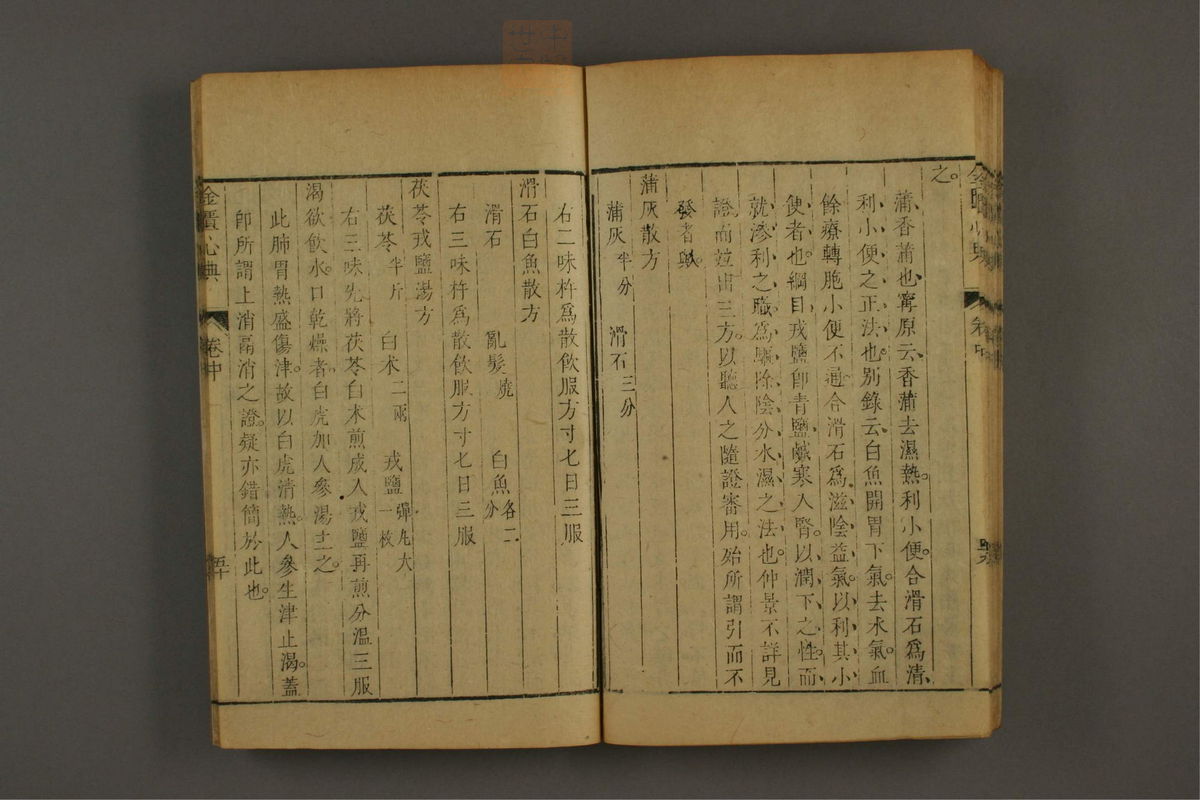 之。
蒲香蒲也。寗原云。香蒲去濕熱。利小便。合滑石爲清
利小便之正法也。別錄云。白魚開胃下氣。去水氣。血
餘療轉胞小便不通。合滑石爲滋陰益氣。以利其小
便者也。綱目戎鹽卽靑鹽。鹹寒入腎。以潤下之性。而
就滲利之職。爲驅除陰分水濕之法也。仲景不詳見
證。而竝出三方。以聽人之隨證審用。殆所謂引而不
發者歟。
蒲灰散方
蒲灰半分 滑石三分
右二味杵爲散飮服方寸匕日三服
滑石白魚散方
滑石 亂髮燒 白魚各二分
右三味杵爲散飮服方寸匕日三服
茯苓戎鹽湯方
茯苓半斤 白朮二兩 戎鹽彈丸大一枚
右三味先將茯苓白朮煎成入戎鹽再煎分溫三服
渴欲飮水。口乾燥者。白虎加人參湯主之。
此肺胃熱盛傷津。故以白虎淸熱。人參生津止渴。蓋
卽所謂上消鬲消之證。疑亦錯簡於此也。
金匱心典 卷中 五十